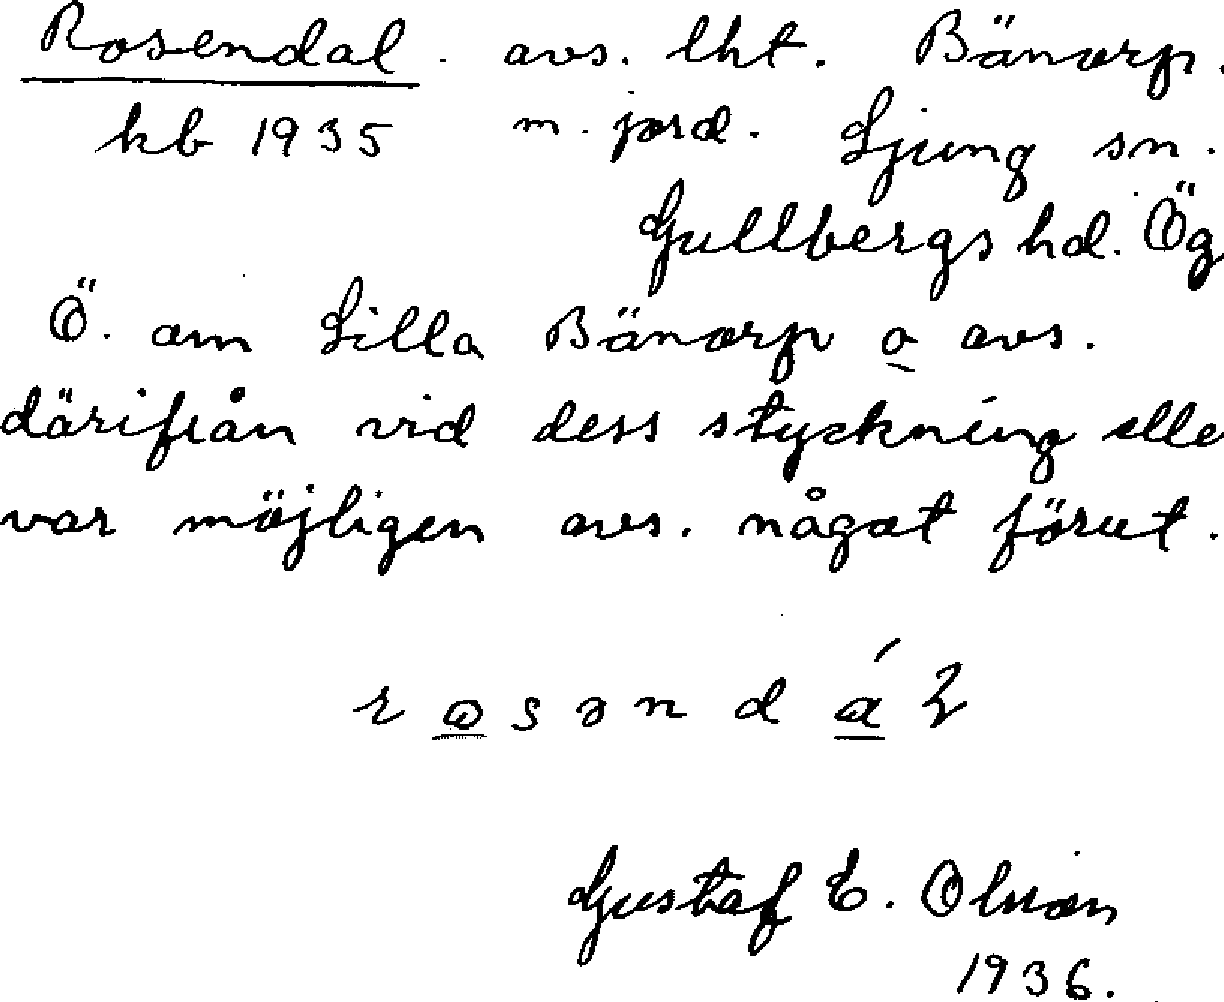 Rosendal. avs. lht. Bänorp.
kb 1935 m. jord. Ljung sn.
Gullbergs hd. Ög
Ö. om Lilla Bänorp o avs.
därifrån vid dess styckning elle
var möjligen avs. något förut.
Gustaf E. Olsson
1936.